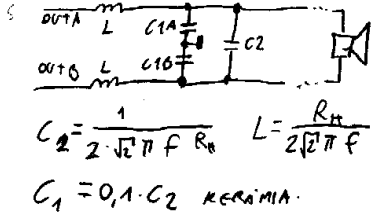 OUT A L C1A C2
OUT B L C1B
C₂ = 1 / (2·√2·π f R_H) L = R_H / (2√2 π f)
C₁ = 0,1·C₂ KERÁMIA.